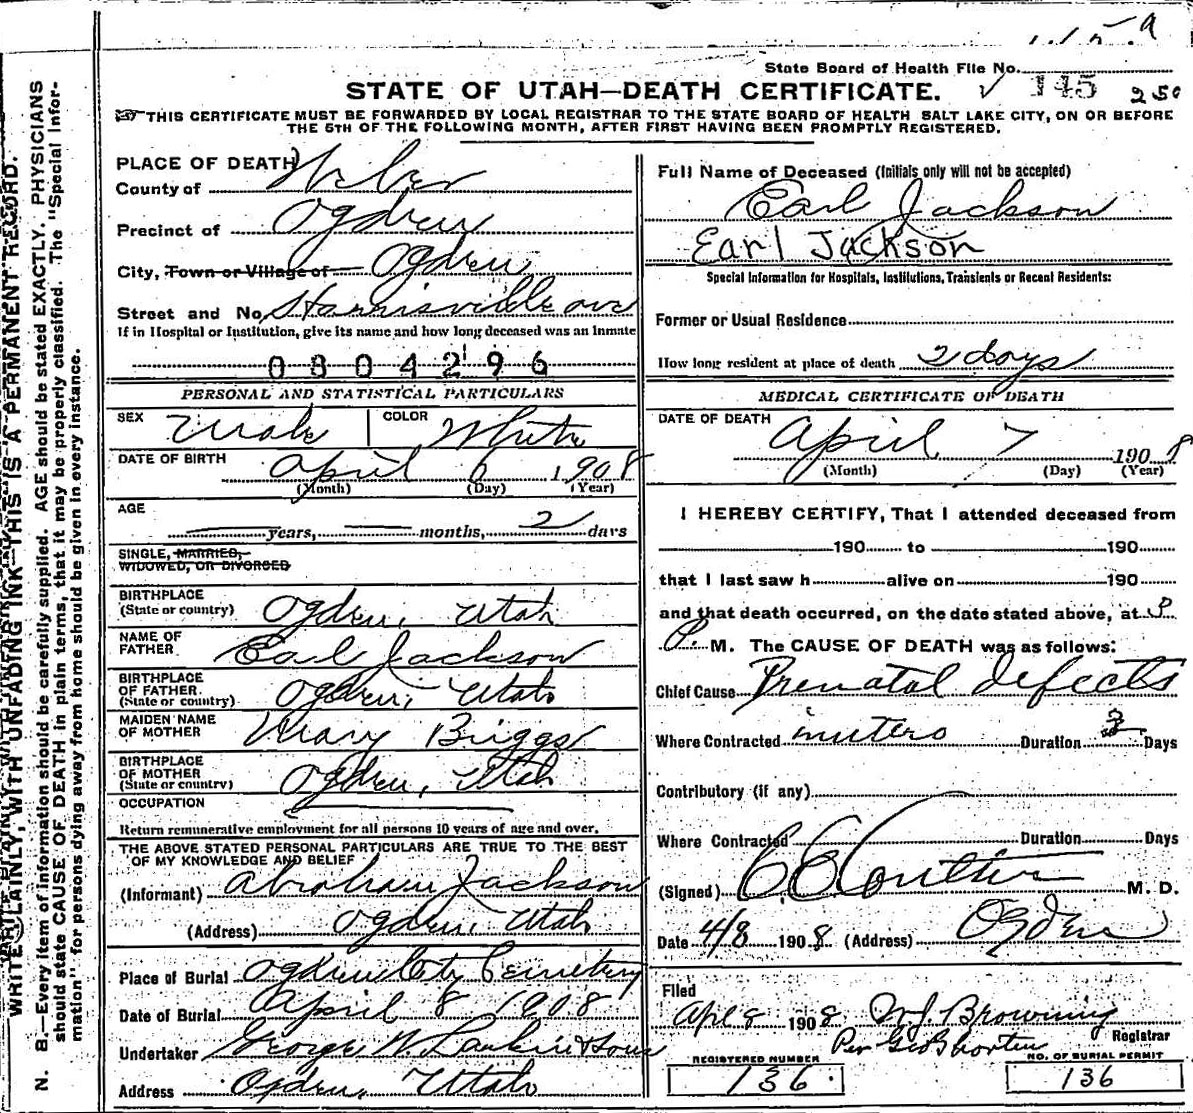 115 a
State Board of Health File No. 145 250
STATE OF UTAH—DEATH CERTIFICATE.
THIS CERTIFICATE MUST BE FORWARDED BY LOCAL REGISTRAR TO THE STATE BOARD OF HEALTH SALT LAKE CITY, ON OR BEFORE
THE 5TH OF THE FOLLOWING MONTH, AFTER FIRST HAVING BEEN PROMPTLY REGISTERED.
WRITE PLAINLY, WITH UNFADING INK—THIS IS A PERMANENT RECORD.
N. B.—Every item of information should be carefully supplied. AGE should be stated EXACTLY. PHYSICIANS
should state CAUSE OF DEATH in plain terms, that it may be properly classified. The "Special Infor-
mation" for persons dying away from home should be given in every instance.
PLACE OF DEATH
County of Weber
Precinct of Ogden
City, Town or Village of Ogden
Street and No. Harrisville ave
If in Hospital or Institution, give its name and how long deceased was an Inmate
0804296
PERSONAL AND STATISTICAL PARTICULARS
SEX Male COLOR White
DATE OF BIRTH April 6 1908
(Month) (Day) (Year)
AGE
years, months, 2 days
SINGLE, MARRIED,
WIDOWED, OR DIVORCED
BIRTHPLACE
(State or country) Ogden, Utah
NAME OF
FATHER Earl Jackson
BIRTHPLACE
OF FATHER
(State or country) Ogden, Utah
MAIDEN NAME
OF MOTHER Mary Briggs
BIRTHPLACE
OF MOTHER
(State or country) Ogden, Utah
OCCUPATION
Return remunerative employment for all persons 10 years of age and over.
THE ABOVE STATED PERSONAL PARTICULARS ARE TRUE TO THE BEST
OF MY KNOWLEDGE AND BELIEF
(Informant) Abraham Jackson
(Address) Ogden, Utah
Place of Burial Ogden City Cemetery
Date of Burial April 8 1908
Undertaker George W. Larkin & Sons
Address Ogden, Utah
Full Name of Deceased (Initials only will not be accepted)
Earl Jackson
Earl Jackson
Special Information for Hospitals, Institutions, Transients or Recent Residents:
Former or Usual Residence
How long resident at place of death 2 days
MEDICAL CERTIFICATE OF DEATH
DATE OF DEATH
April 7 1908
(Month) (Day) (Year)
I HEREBY CERTIFY, That I attended deceased from
190 to 190
that I last saw h alive on 190
and that death occurred, on the date stated above, at 3
P. M. The CAUSE OF DEATH was as follows:
Chief Cause Prenatal defects
Where Contracted in utero Duration Days
Contributory (if any)
Where Contracted Duration Days
(Signed) M. D.
Date 4/8 1908 (Address) Ogden
Filed
Apl 8 1908 Browning
Registrar
Per Geo Shorten
REGISTERED NUMBER NO. OF BURIAL PERMIT
136 136